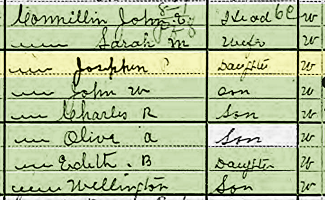 Connillin John E Head 60 W
" Sarah M Wife W
" Josephin Daughter W
" John W Son W
" Charles R Son W
" Olive A Son W
" Edith B Daughter W
" Wellington Son W